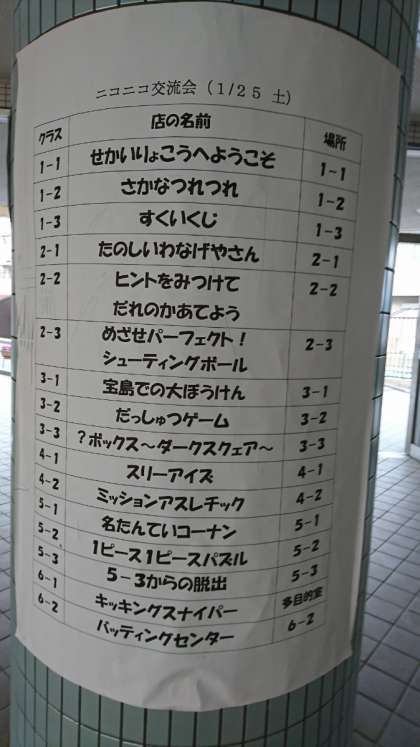 ニコニコ交流会（1/25 土）
クラス 店の名前 場所
1-1 せかいりょこうへようこそ 1-1
1-2 さかなつれつれ 1-2
1-3 すくいくじ 1-3
2-1 たのしいわなげやさん 2-1
2-2 ヒントをみつけて 2-2
だれのかあてよう
2-3 めざせパーフェクト！ 2-3
シューティングボール
3-1 宝島での大ぼうけん 3-1
3-2 だっしゅつゲーム 3-2
3-3 ？ボックス～ダークスクェア～ 3-3
4-1 スリーアイズ 4-1
4-2 ミッションアスレチック 4-2
5-1 名たんていコーナン 5-1
5-2 1ピース1ピースパズル 5-2
5-3 5-3からの脱出 5-3
6-1 キッキングスナイパー 多目的室
6-2 バッティングセンター 6-2